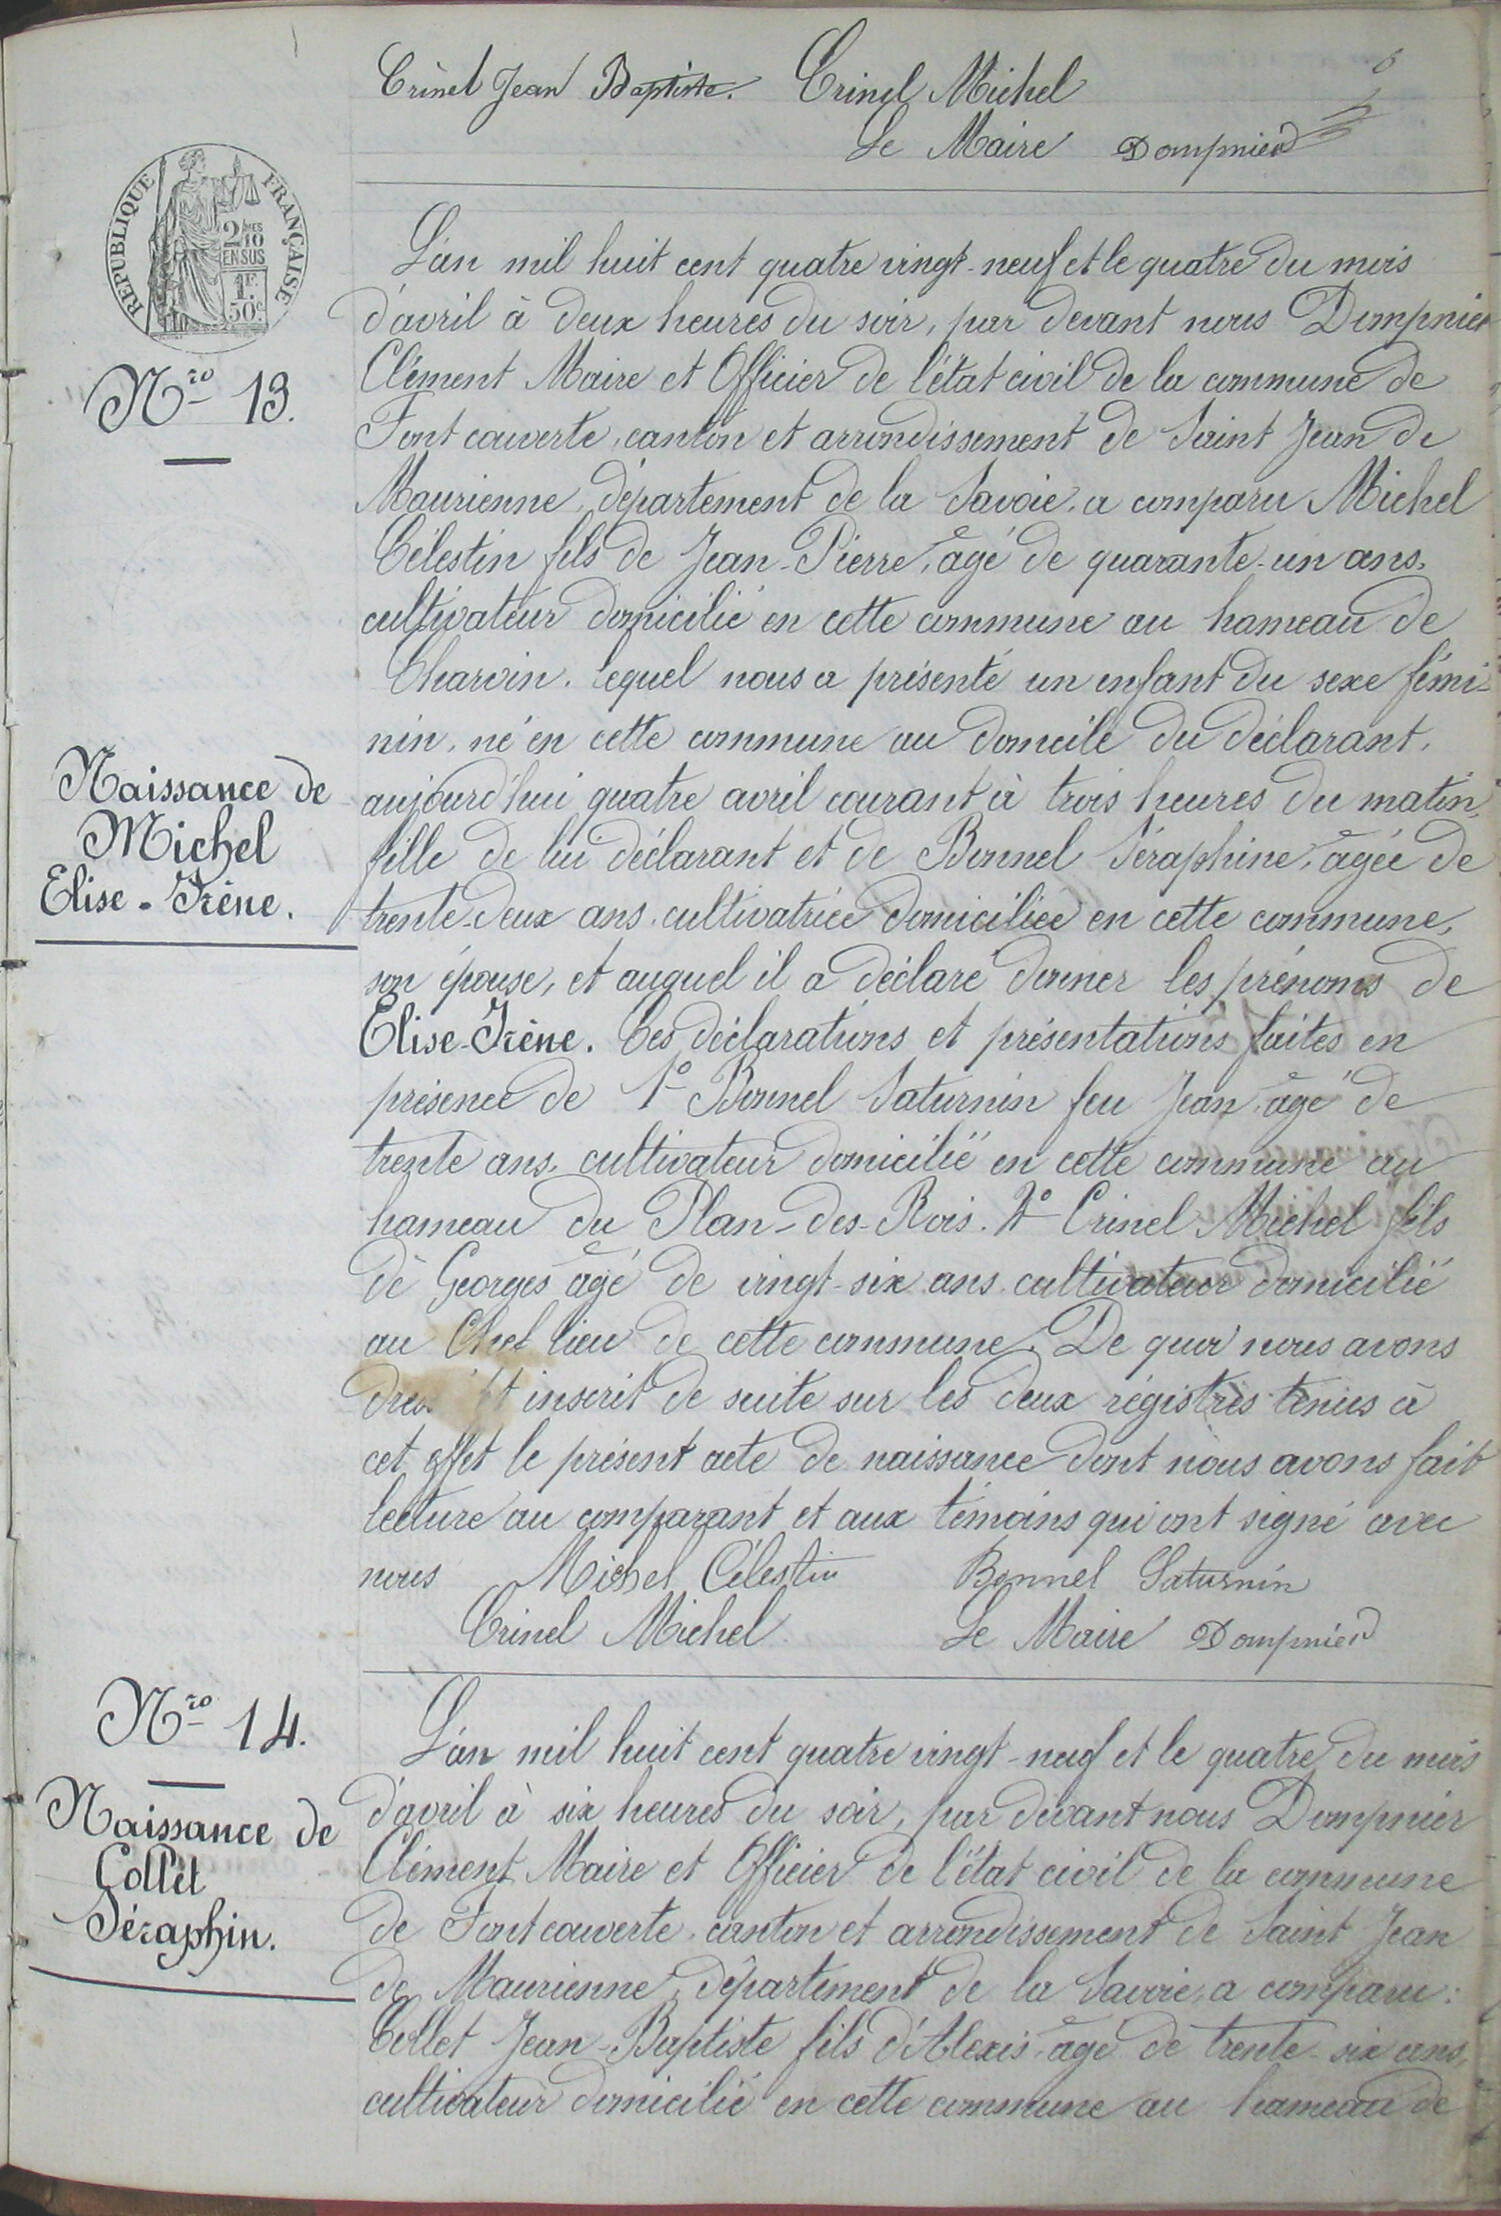 Crinel Jean Baptiste. Crinel Michel
Le Maire Dompnier
RÉPUBLIQUE FRANÇAISE
2/10MES
EN SUS
1F.
50c
Nro 13.
L'an mil huit cent quatre vingt-neuf et le quatre du mois
d'avril à deux heures du soir, par devant nous Dompnier
Clément Maire et Officier de l'état civil de la commune de
Font couverte, canton et arrondissement de Saint Jean de
Maurienne, département de la Savoie, a comparu Michel
Célestin fils de Jean-Pierre, âgé de quarante-un ans,
cultivateur domicilié en cette commune au hameau de
Charvin. lequel nous a présenté un enfant du sexe fémi-
nin, né en cette commune au domcile du déclarant,
Naissance de
Michel
Elise-Irène.
aujourd'hui quatre avril courant à trois heures du matin,
fille de lui déclarant et de Bonnel Séraphine, âgée de
trente-deux ans, cultivatrice domiciliée en cette commune,
son épouse, et auquel il a déclaré donner les prénoms de
Elise-Irène. Ces déclarations et présentations faites en
présence de 1° Bonnel Saturnin feu Jean, âgé de
trente ans, cultivateur domicilié en cette commune au
hameau du Plan-des-Rois. 2° Crinel Michel fils
de Georges âgé de vingt-six ans cultivateur domicilié
au Chef lieu de cette commune. De quoi nous avons
et inscrit de suite sur les deux régistres tenus à
cet effet le présent acte de naissance dont nous avons fait
lecture au comparant et aux témoins qui ont signé avec
nous Michel Célestin Bonnel Saturnin
Crinel Michel Le Maire Dompnier
Nro 14.
Naissance de
Collet
Séraphin.
L'an mil huit cent quatre vingt-neuf et le quatre du mois
d'avril à six heures du soir, par devant nous Dompnier
Clément Maire et Officier de l'état civil de la commune
de Fontcouverte, canton et arrondissement de Saint Jean
de Maurienne, département de la Savoie, a comparu:
Collet Jean-Baptiste fils d'Alexis âgé de trente-six ans,
cultivateur domicilié en cette commune au hameau de